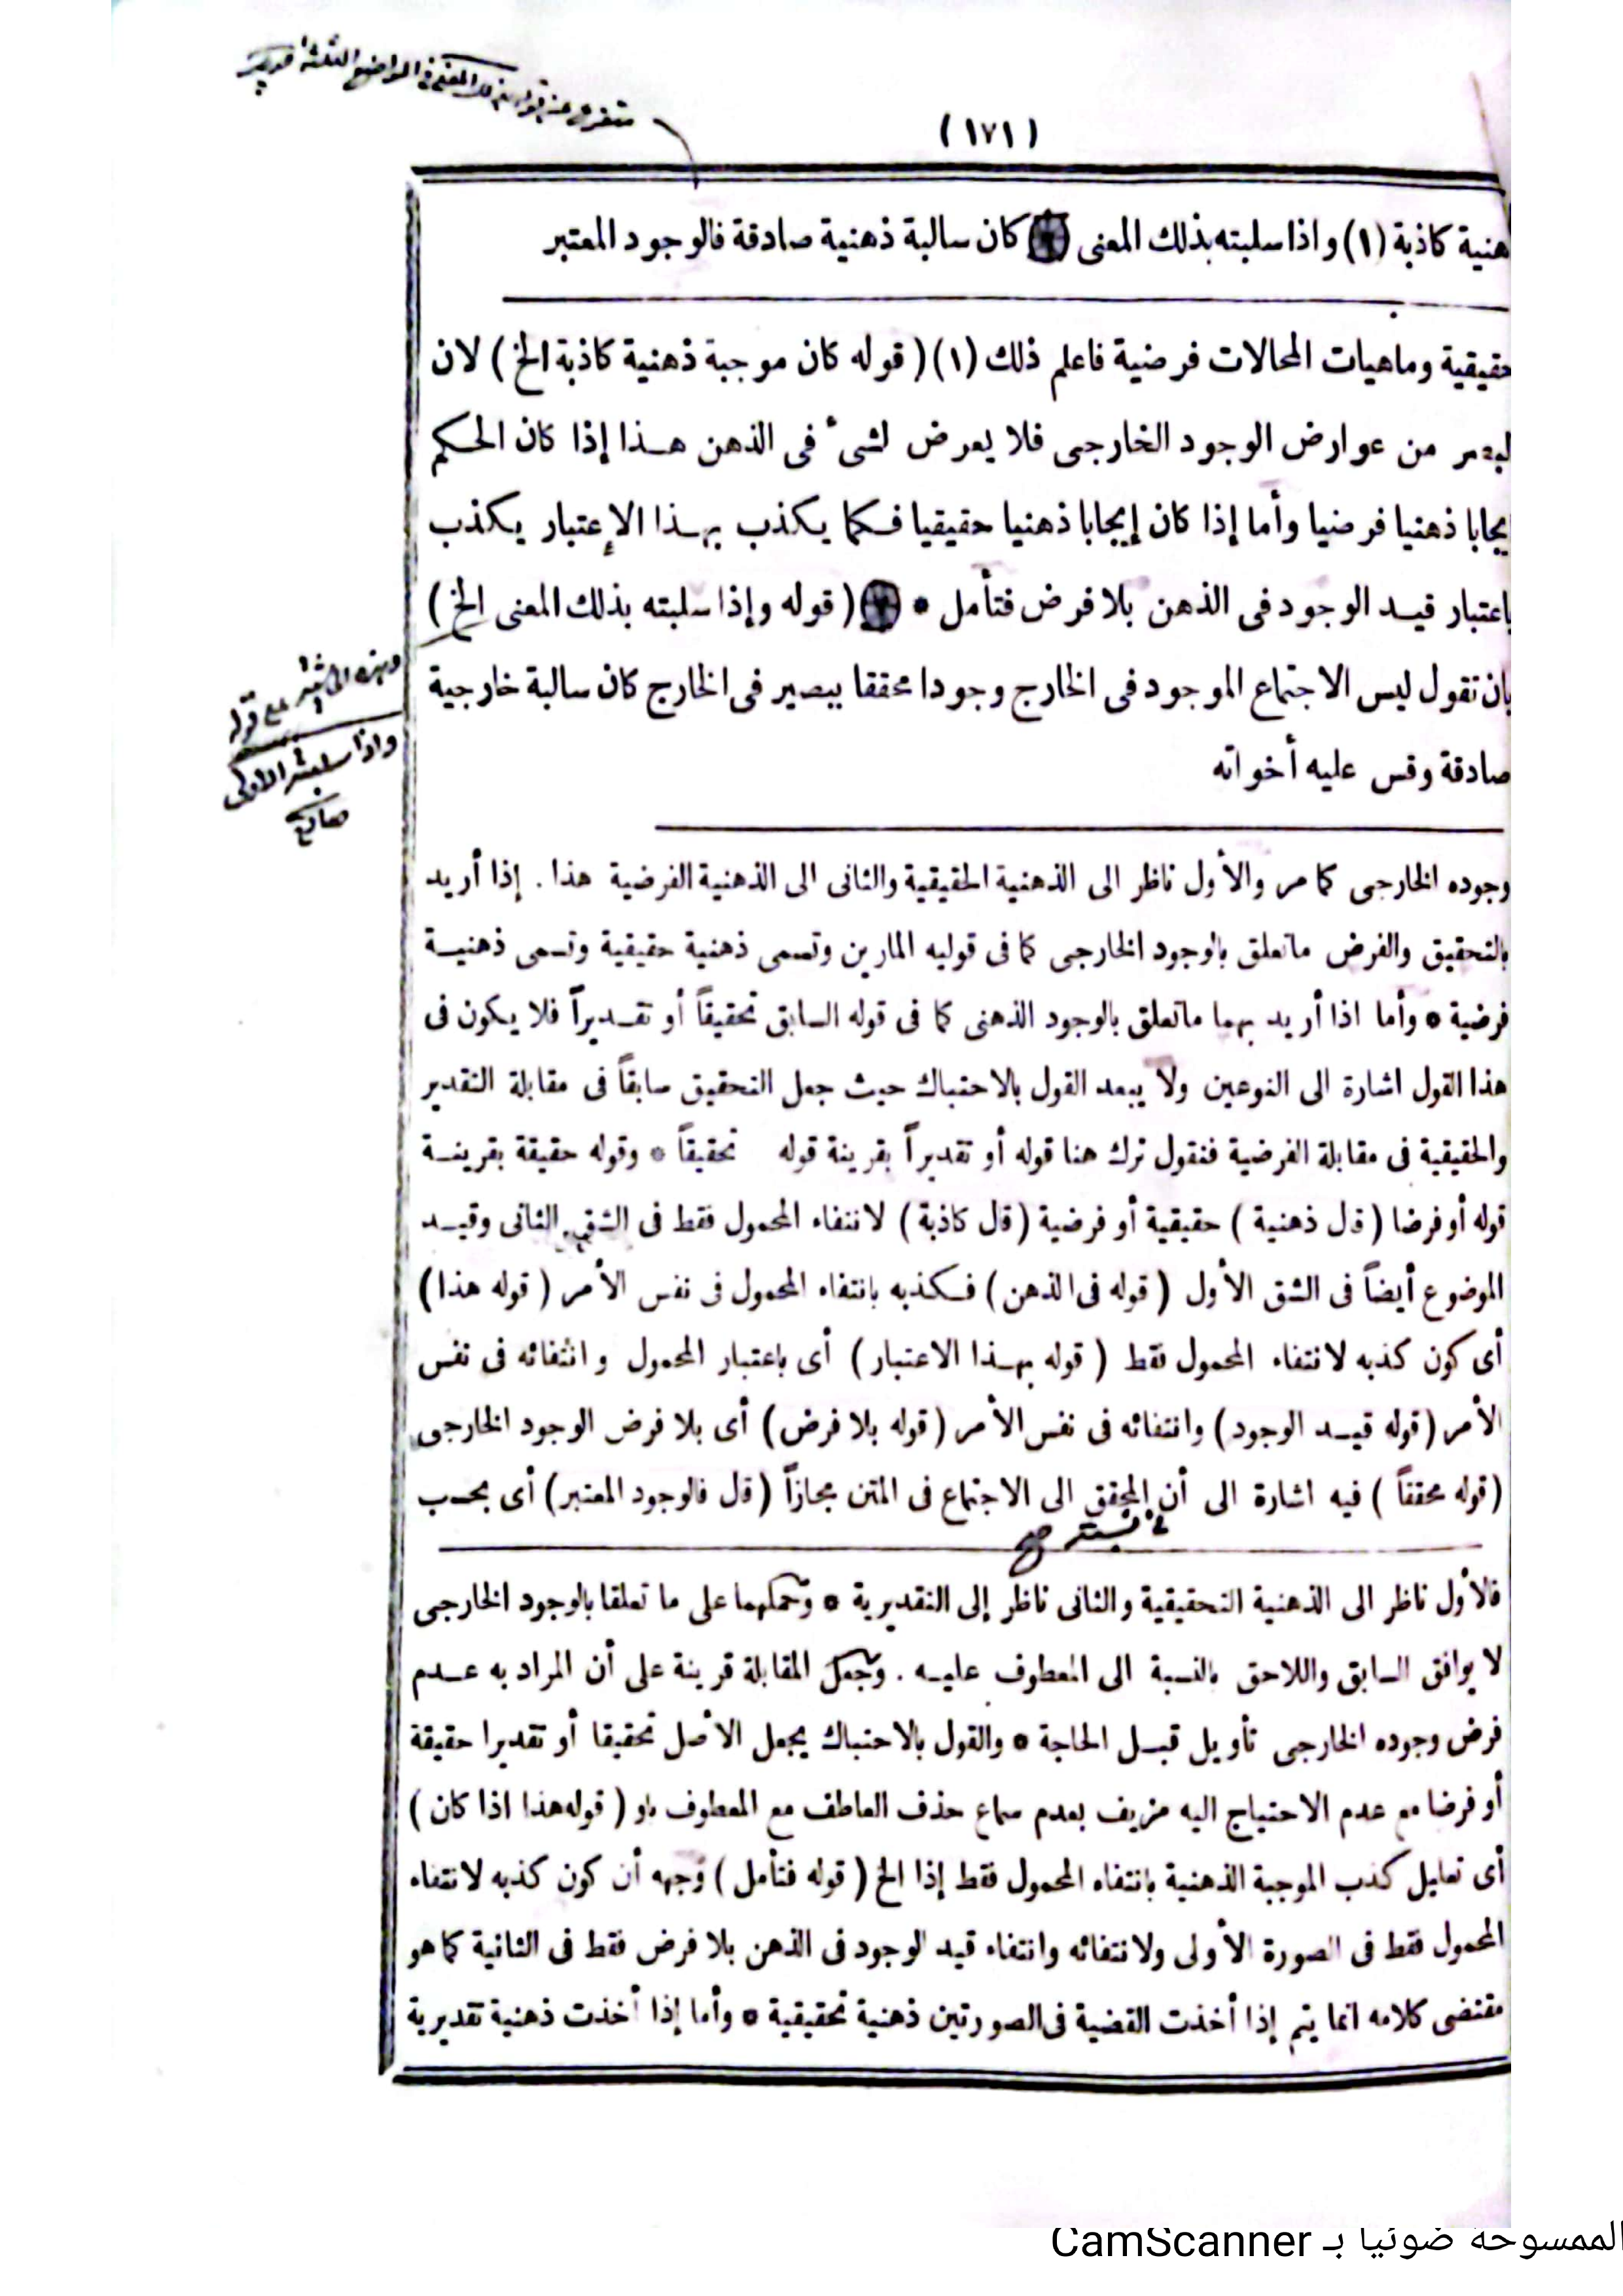 (١٧١)
هنية كاذبة (١) واذا سلبته بذلك المعنى كان سالبة ذهنية صادقة فالوجود المعتبر
حقيقية وماهيات المحالات فرضية فاعلم ذلك (١) ( قوله كان موجبة ذهنية كاذبة الخ ) لان
من عوارض الوجود الخارجى فلا يعرض لشىء فى الذهن هـذا إذا كان الحكم
يجابا ذهنيا فرضيا وأما إذا كان إيجابا ذهنيا حقيقيا فـكما يـكذب بهـذا الإعتبار يـكذب
باعتبار قيـد الوجود فى الذهن بلا فرض فتأمل * ( قوله وإذا سلبته بذلك المعنى الخ )
بان تقول ليس الاجتماع الموجود فى الخارج وجودا محققا ببصير فى الخارج كان سالبة خارجية
صادقة وقس عليه أخواته
واذا سلبته الاولى
وجوده الخارجى كما مر والأول ناظر الى الذهنية الحقيقية والثانى الى الذهنية الفرضية هذا . إذا أريد
بالتحقيق والفرض ماتعلق بالوجود الخارجى كما فى قوليه المارين وتسمى ذهنية حقيقية وتسمى ذهنيـة
فرضية * وأما اذا أريد بهما ماتعلق بالوجود الذهنى كما فى قوله السابق تحقيقاً أو تقـديراً فلا يكون فى
هذا القول اشارة الى النوعين ولا يبعد القول بالاحتباك حيث جعل التحقيق سابقاً فى مقابلة التقدير
والحقيقية فى مقابلة الفرضية فنقول ترك هنا قوله أو تقديراً بقرينة قوله تحقيقاً * وقوله حقيقة بقرينـة
قوله أو فرضا ( قال ذهنية ) حقيقية أو فرضية ( قال كاذبة ) لانتفاء المحمول فقط فى الشق الثانى وقيـد
الموضوع أيضاً فى الشق الأول ( قوله فى الذهن ) فـكذبه بانتفاء المحمول فى نفس الأمر ( قوله هذا )
أى كون كذبه لانتفاء المحمول فقط ( قوله بهـذا الاعتبار ) أى باعتبار المحمول وانتفائه فى نفس
الأمر ( قوله قيـد الوجود ) وانتفائه فى نفس الأمر ( قوله بلا فرض ) أى بلا فرض الوجود الخارجى
( قوله محققاً ) فيه اشارة الى أن المحقق الى الاجتماع فى المتن مجازاً ( قال فالوجود المعتبر ) أى بحسب
فالأول ناظر الى الذهنية التحقيقية والثانى ناظر إلى التقديرية * وحملهما على ما تعلقا بالوجود الخارجى
لا يوافق السابق واللاحق بالنسبة الى المعطوف عليـه . وجعل المقابلة قرينة على أن المراد به عـدم
فرض وجوده الخارجى تأويل قبـل الحاجة * والقول بالاحتباك بجعل الأصل تحقيقا أو تقديرا حقيقة
أو فرضا مع عدم الاحتياج اليه مزيف بعدم سماع حذف العاطف مع المعطوف باو ( قوله هذا اذا كان )
أى تعليل كذب الموجبة الذهنية بانتفاء المحمول فقط إذا الخ ( قوله فتأمل ) وجهه أن كون كذبه لانتفاء
المحمول فقط فى الصورة الأولى ولانتفائه وانتفاء قيد الوجود فى الذهن بلا فرض فقط فى الثانية كما هو
مقتضى كلامه انما يتم إذا أخذت القضية فى الصورتين ذهنية تحقيقية * وأما إذا أخذت ذهنية تقديرية
الممسوحة ضوئيا بـ CamScanner